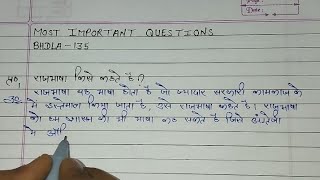 MOST IMPORTANT QUESTIONS
BHDLA-135
राजभाषा किसे कहते है?
राजभाषा वह भाषा होता है जो ज्यादार सरकारी कामकाज के
में इस्तेमाल किया जाता है, उसे राजभाषा कहते है। राजभाषा
को हम शासन की भी भाषा कह सकते है जिसे अंग्रेजी
में